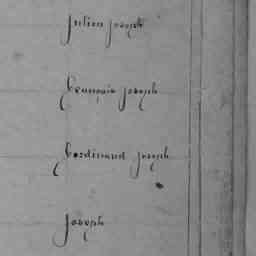 Julien joseph
François joseph
Ferdinand joseph
Joseph